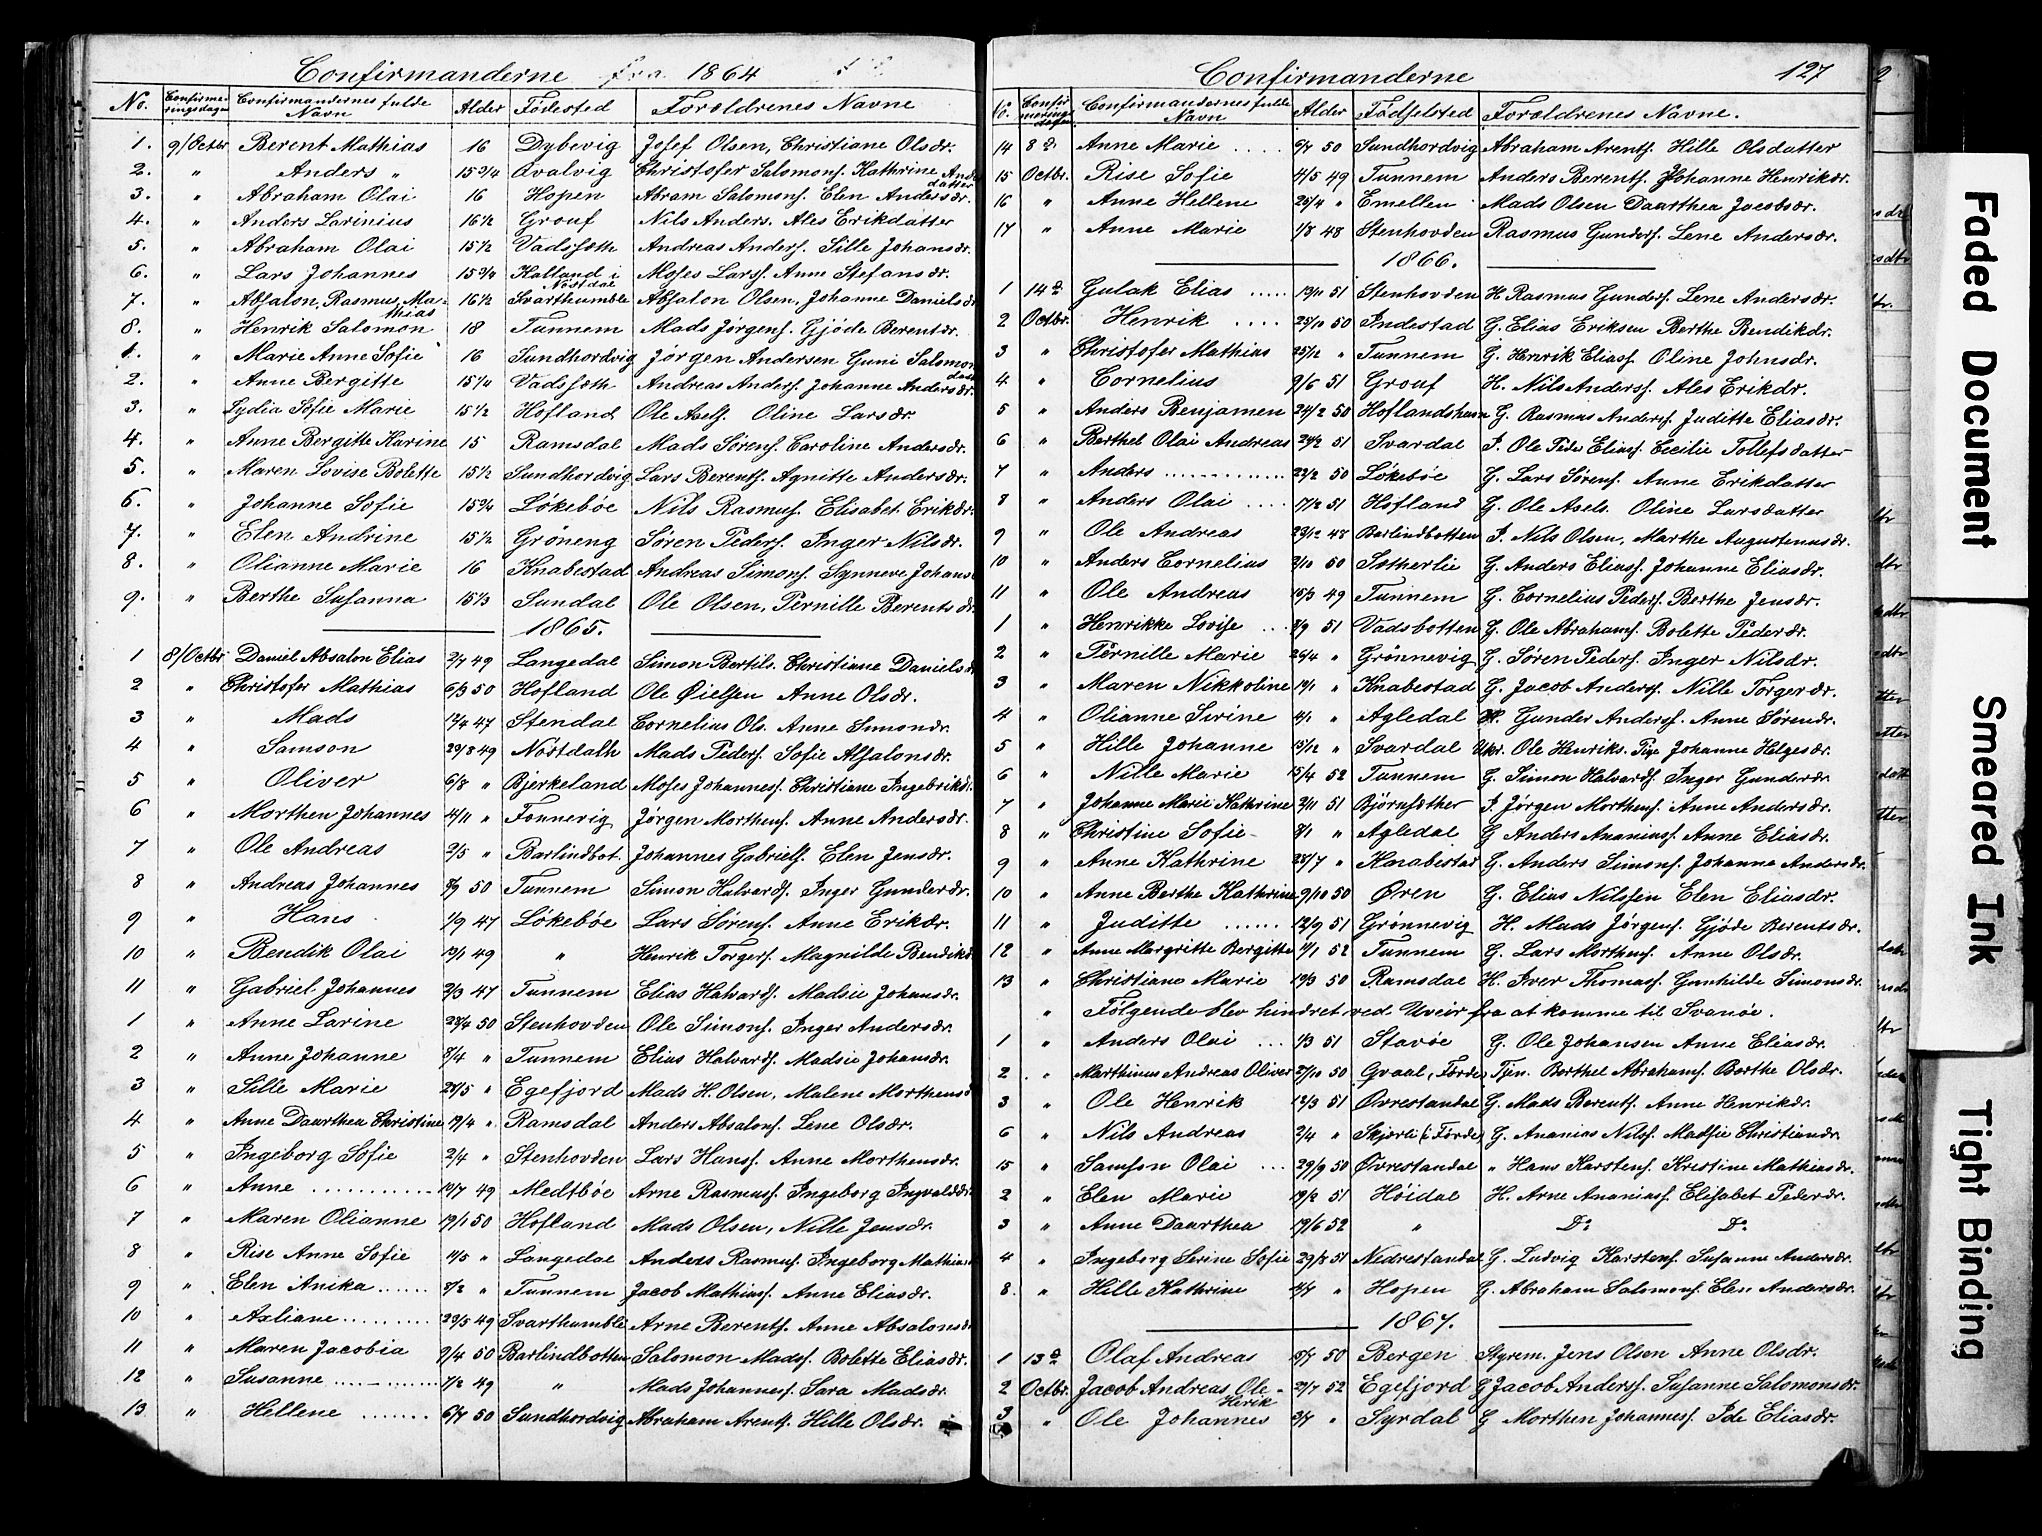 Confirmanderne fra 1864
No. Confirmeringsdagen Confirmandernes fulde Navn Alder Fødested Forældrenes Navne
1. 9/Octbr Berent Mathias 16 Dybevig Josef Olsen, Christiane Olsdr.
2. " Anders " 15 3/4 Qvalvig Christofer Salomons. Kathrine Andersdatter
3. " Abraham Olai 16 Hopen Abram Salomons. Elen Andersdr.
4. " Anders Larinius 16 1/2 Grouf Nils Anders. Ales Erikdatter
5. " Abraham Olai 15 1/2 Vadsæth Andreas Anders. Sille Johansdr.
6. " Lars Johannes 15 3/4 Kalland i Nøstdal Moses Larss. Anne Stefansdr.
7. " Absalon Rasmus Mathias 16 1/2 Svarthumble Absalon Olsen, Johanne Danielsdr
8. " Henrik Salomon 18 Tunnem Mads Jørgens. Gjøde Berentdr.
1. " Marie Anne Sofie 16 Sundhordvig Jørgen Andersen Guni Salomondatr
2. " Anne Bergitte 15 1/4 Vadsæth Andreas Anders. Johanne Andersdr.
3. " Lydia Sofie Marie 15 1/2 Hofland Ole Axels. Oline Larsdr
4. " Anne Bergitte Karine 15 Ramsdal Mads Sørens. Caroline Andersdr.
5. " Maren Lovise Bolette 15 1/2 Sundhordvig Lars Berents. Agnitte Andersdr.
6. " Johanne Sofie 15 3/4 Løkebøe Nils Rasmus. Elisabet Erikdr.
7. " Elen Andrine 15 1/2 Grøneng Søren Peders. Inger Nilsdr.
8. " Olianne Marie 16 Knabestad Andreas Simons. Synneve Johans
9. " Berthe Susanna 15 1/3 Sundal Ole Olsen, Pernille Berentsdr
1865.
1 8/Octbr Daniel Absalon Elias 2/7 49 Langedal Simon Bertils. Christiane Danielsdr
2 " Christofer Mathias 6/3 50 Hofland Ole Øielsen Anne Olsdr.
3 " Mads 17/4 47 Stendal Cornelius Ols. Anne Simondr.
4 " Samson 29/8 49 Nøstdalh Mads Peders. Sofie Absalonsdr.
5 " Oliver 6/8 " Bjerkeland Moses Johanness. Christiane Ingebrikdr.
6 " Morthen Johannes 4/11 " Fonnevig Jørgen Morthens. Anne Andersdr.
7 " Ole Andreas 2/5 " Barlindbot. Johannes Gabriels. Elen Jensdr.
8 " Andreas Johannes 8/9 50 Tunnem Simon Halvards. Inger Gunderdr.
9 " Hans 1/9 47 Løkebøe Lars Sørens. Anne Erikdr.
10 " Bendik Olai 13/1 49 " Henrik Torgers. Magnilde Bendikd
11 " Gabriel Johannes 2/3 47 Tunnem Elias Halvards. Madsie Johansdr.
1 " Anne Larine 28/4 50 Stenhovden Ole Simons. Inger Andersdr.
2 " Anne Johanne 8/4 " Tunnem Elias Halvards. Madsie Johansdr.
3 " Sille Marie 28/5 " Egefjord Mads H. Olsen, Malene Morthensd
4 " Anne Daarthea Christine 19/4 " Ramsdal Anders Absalons. Lene Olsdr.
5 " Ingeborg Sofie 2/4 " Stenhovden Lars Hanss. Anne Morthensdr.
6 " Anne ........... 13/7 49 Medtbøe Arne Rasmuss. Ingeborg Ingvaldsdr.
7 " Maren Olianne 19/1 50 Hofland Mads Olsen, Nille Jensdr.
8 " Rise Anne Sofie 11/5 " Langedal Anders Rasmus. Ingeborg Mathias
9 " Elen Anika ...... 8/2 " Tunnem Jacob Mathiass. Anne Eliasdr.
10 " Axliane ......... 23/5 49 Svarthumble Arne Berents. Anne Absalonsdr
11 " Maren Jacobia 9/4 50 Barlindbotten Salomon Madss. Bolette Eliasdr.
12 " Susanne ........ 1/2 49 " Mads Johanness. Sara Madsdr.
13 " Hellene ....... 6/7 50 Sundhordvig Abraham Arents. Hille Olsdr.
Confirmanderne 127
No. Confirmeringsdagen Confirmandernes fulde Navn Alder Fødselsted Forældrenes Navne.
14 8de Anne Marie ..... 6/7 50 Sundhordvig Abraham Arents. Hille Olsdatter
15 Octbr. Rise Sofie 4/5 49 Tunnem Anders Berents. Johanne Henrikdr.
16 " Anne Hellene 25/4 " Emellen Mads Olsen Daarthea Jacobsdr.
17 " Anne Marie 1/8 48 Stenhovden Rasmus Gunders. Lene Andersdr.
1866.
1 14de Gulak Elias ..... 19/11 51 Stenhovden H. Rasmus Gunders. Lene Andersdr.
2 Octbr. Henrik .... 25/10 50 Indestad G. Elias Eriksen Berthe Bendikdr.
3 " Christofer Mathias 25/12 " Tunnem G. Henrik Eliass. Oline Johnsdr.
4 " Cornelius 9/6 51 Grouf H. Nils Anderss. Ales Erikdr.
5 " Anders Benjamen 24/2 50 Hoflandsham G. Rasmus Anders. Juditte Eliasdr.
6 " Berthel Olai Andreas 24/2 51 Svardal I. Ole Peder Eliass. Cecilie Tollefsdatter
7 " Anders ............. 22/2 50 Løkebøe G. Lars Sørens. Anne Erikdatter
8 " Anders Olai .... 17/2 51 Hofland G. Ole Axels. Oline Larsdatter
9 " Ole Andreas 23/12 48 Barlindbotten I. Nils Olsen, Marthe Augustenusdr.
10 " Anders Cornelius 2/10 50 Sætherlie G. Anders Eliass. Johanne Eliasdr.
11 " Ole Andreas 15/3 49 Tunnem G. Cornelius Peders. Berthe Jensdr.
1 " Henrikke Lovise ... 8/9 51 Vadsbotten G. Ole Abrahams. Bolette Pederdr.
2 " Pernille Marie 26/4 " Grønnevig G. Søren Peders. Inger Nilsdr.
3 " Maren Nikkoline 19/1 " Knabestad G. Jacob Anderss. Nille Torgerdr.
4 " Olianne Sirine 4/1 " Agledal H. Gunder Anderss. Anne Sørendr.
5 " Hille Johanne 15/12 " Svardal Ukr. Ole Henriks. Pige Johanne Helgesdr.
6 " Nille Marie 15/4 52 Tunnem G. Simon Halvards. Inger Gunderdr.
7 " Johanne Marie Kathrine 2/11 51 Bjørnsæther I. Jørgen Morthens. Anne Andersdr.
8 " Christine Sofie 8/1 " Agledal G Anders Ananiass. Anne Eliasdr.
9 " Anne Kathrine 28/7 " Knabestad G. Anders Simons. Johanne Andersdr.
10 " Anne Berthe Kathrine 9/10 50 Øren G. Elias Nilssen Elen Eliasdr.
11 " Juditte ...... 12/9 51 Grønnevig H. Mads Jørgens. Gjøde Berentsdr.
12 " Anne Margritte Bergitte 11/1 52 Tunnem G. Lars Morthens. Anne Olsdr.
13 " Christiane Marie 19/3 50 Ramsdal H. Iver Thomass. Gunhilde Simonsdr.
" Følgende blev hindret ved Uveir fra at komme til Svanøe.
1 " Anders Olai ... 1/3 51 Stavøe G. Ole Johansen Anne Eliasdr.
2 " Marthinus Andreas Oliver 27/10 50 Gvaal, Førde Tjen. Berthel Abrahams. Berthe Olsdr.
3 " Ole Henrik 12/3 51 Øvrestandal G. Mads Berents. Anne Henrikdr.
6 " Nils Andreas 2/4 " Skjerli i Førde G. Ananias Nilss. Madsie Christiandr.
15 " Samson Olai ... 29/9 50 Øvrestandal " Hans Karstens. Kristine Mathiasdr.
2 " Elen Marie 19/2 51 Høidal H. Arne Ananiass. Elisabet Pederdr.
3 " Anne Daarthea 19/6 52 " Do Do
4 " Ingeborg Serine Sofie 29/8 51 Nedrestandal G. Ludvig Karstens. Susanne Andersdr.
8. " Hille Kathrine 11/7 " Hopen G. Abraham Salomons. Elen Andersdr.
1867.
1 13de Olaf Andreas 18/7 50 Bergen Styrem. Jens Olsen Anne Olsdr.
2 Octbr. Jacob Andreas Ole Henrik 21/7 52 Egefjord G Jacob Anderss. Susanne Salomonsdr.
3 " Ole Johannes 2/7 " Syrdal G Morthen Johanness. Ide Eliasdr.
Faded Document
Smeared Ink
Tight Binding